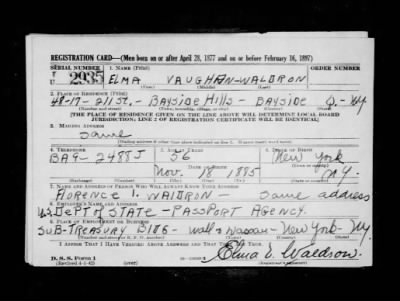 REGISTRATION CARD—(Men born on or after April 28, 1877 and on or before February 16, 1897)
SERIAL NUMBER 1. NAME (Print) ORDER NUMBER
U 2935 ELMA VAUGHAN-WALDRON
(First) (Middle) (Last)
2. PLACE OF RESIDENCE (Print)
48-17-211 St. - BAYSIDE HILLS - BAYSIDE Q.-NY
[THE PLACE OF RESIDENCE GIVEN ON THE LINE ABOVE WILL DETERMINE LOCAL BOARD
JURISDICTION; LINE 2 OF REGISTRATION CERTIFICATE WILL BE IDENTICAL]
3. MAILING ADDRESS
Same
[Mailing address if other than place indicated on line 2. If same insert word same]
4. TELEPHONE 5. AGE IN YEARS 6. PLACE OF BIRTH
BA9-2488J 56 New York
Nov. 18 1885 N.Y.
7. NAME AND ADDRESS OF PERSON WHO WILL ALWAYS KNOW YOUR ADDRESS
FLORENCE I. WALDRON - Same address
8. EMPLOYER'S NAME AND ADDRESS
U.S. DEPT of STATE - PASSPORT AGENCY.
9. PLACE OF EMPLOYMENT OR BUSINESS
SUB-TREASURY BLDG - Wall & Nassau - New York - NY.
I AFFIRM THAT I HAVE VERIFIED ABOVE ANSWERS AND THAT THEY ARE TRUE.
D. S. S. Form 1
(Revised 4-1-42) Elma V. Waldron.